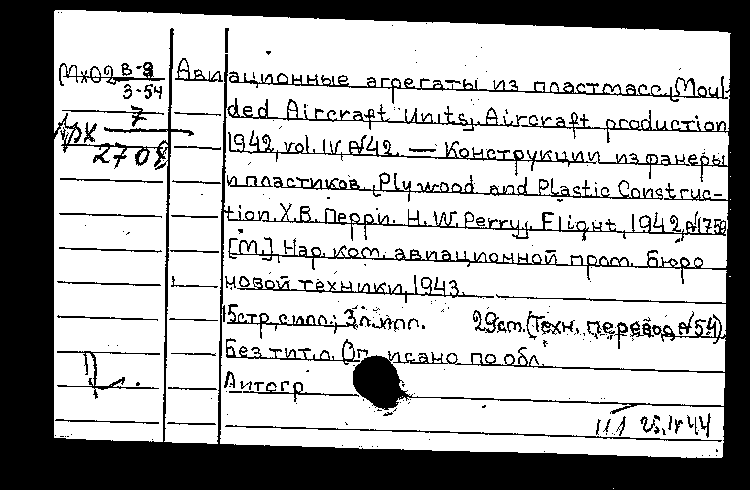 МхО2 В-9
3-54
Арх 7
2708
Авиационные агрегаты из пластмасс, Moul-
ded Aircraft Units, Aircraft production
1942, vol. IV, №42. — Конструкции из фанеры
и пластиков, Plywood and Plastic Construc-
tion. Х.В. Перри. H.W. Perry, Flight, 1942, №1759
[М.], Нар. ком. авиационной пром. Бюро
новой техники, 1943.
15стр. с илл.; 3 л. илл. 29см. (Техн. перевод №54).
Без тит. л. Описано по обл.
Автогр
25.IV 44